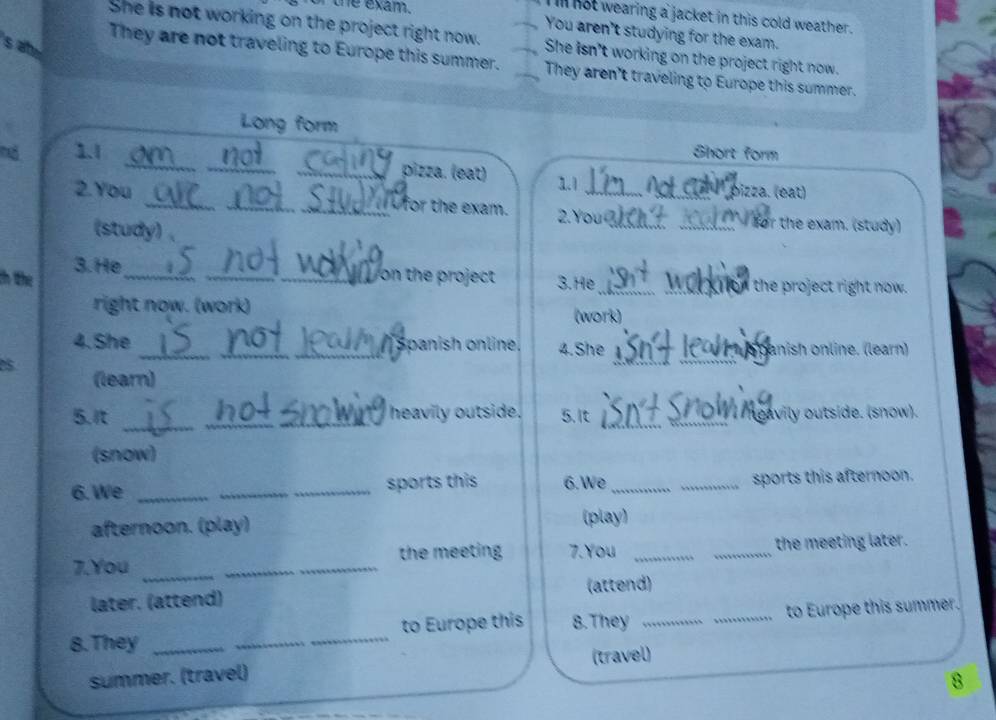 the exam.
She is not working on the project right now.
They are not traveling to Europe this summer.
I'm not wearing a jacket in this cold weather.
You aren't studying for the exam.
She isn't working on the project right now.
They aren't traveling to Europe this summer.
Long form
1. I am not eating pizza. (eat)
2. You are not for the exam.
(study)
3. He is not working on the project
right now. (work)
4. She is not learning Spanish online.
(learn)
5. It is not snowing heavily outside.
(snow)
6. We ________ ________ ________ sports this
afternoon. (play)
7. You ________ ________ ________ the meeting
later. (attend)
8. They ________ ________ ________ to Europe this
summer. (travel)
Short form
1. I I'm not eating pizza. (eat)
2. You aren't for the exam. (study)
3. He isn't working the project right now.
(work)
4. She isn't learning Spanish online. (learn)
5. It isn't snowing heavily outside. (snow).
6. We ________ ________ sports this afternoon.
(play)
7. You ________ ________ the meeting later.
(attend)
8. They ________ ________ to Europe this summer.
(travel)
8